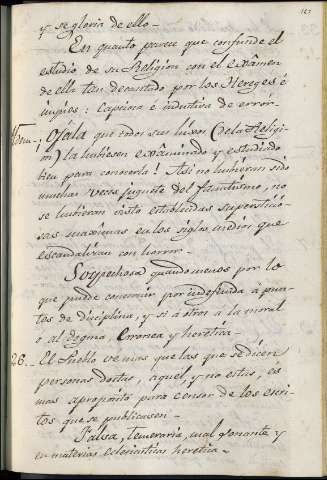 127
y se gloria de ello_
En quanto parece que confunde el
estudio de su Religion con el exâmen
de ella tan decantado por los Hereges é
impios: Capciosa é inductiva de error.
¡Ojala que todos sus hixos (de la Religi-
on) la hubiesen exâminado y estudiado
bien para conocerla! Asi no hubieran sido
muchas veces juguete del fanatismo, no
se hubieran visto establecidas supersticio-
sas maximas en los siglos medios que
escandalizan con horror_
Sospechosa quando menos por lo
que puede concernir por indefinida á pun-
tos de disciplina, y si á otros a la moral
o al dogma, Erronea y heretica_
26._ El Pueblo ve mas que las que se dicen
personas doctas, aquel, y no estas, es
mas aproposito para censor de los escri-
tos que se publicasen_
Falsa, temeraria, mal sonante y
en materias eclesiasticas heretica_